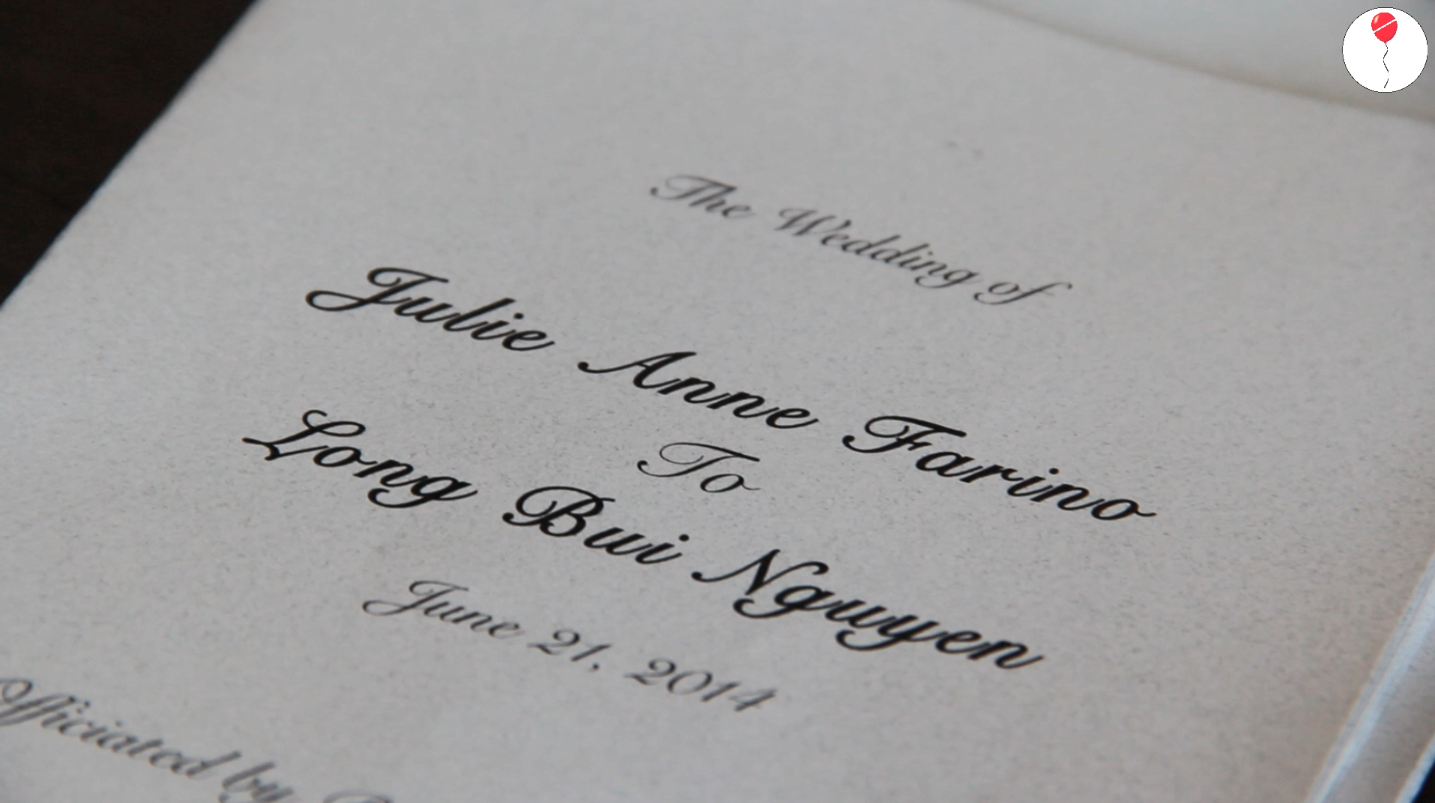 The Wedding of
Julie Anne Farino
To
Long Bui Nguyen
June 21, 2014
Officiated by